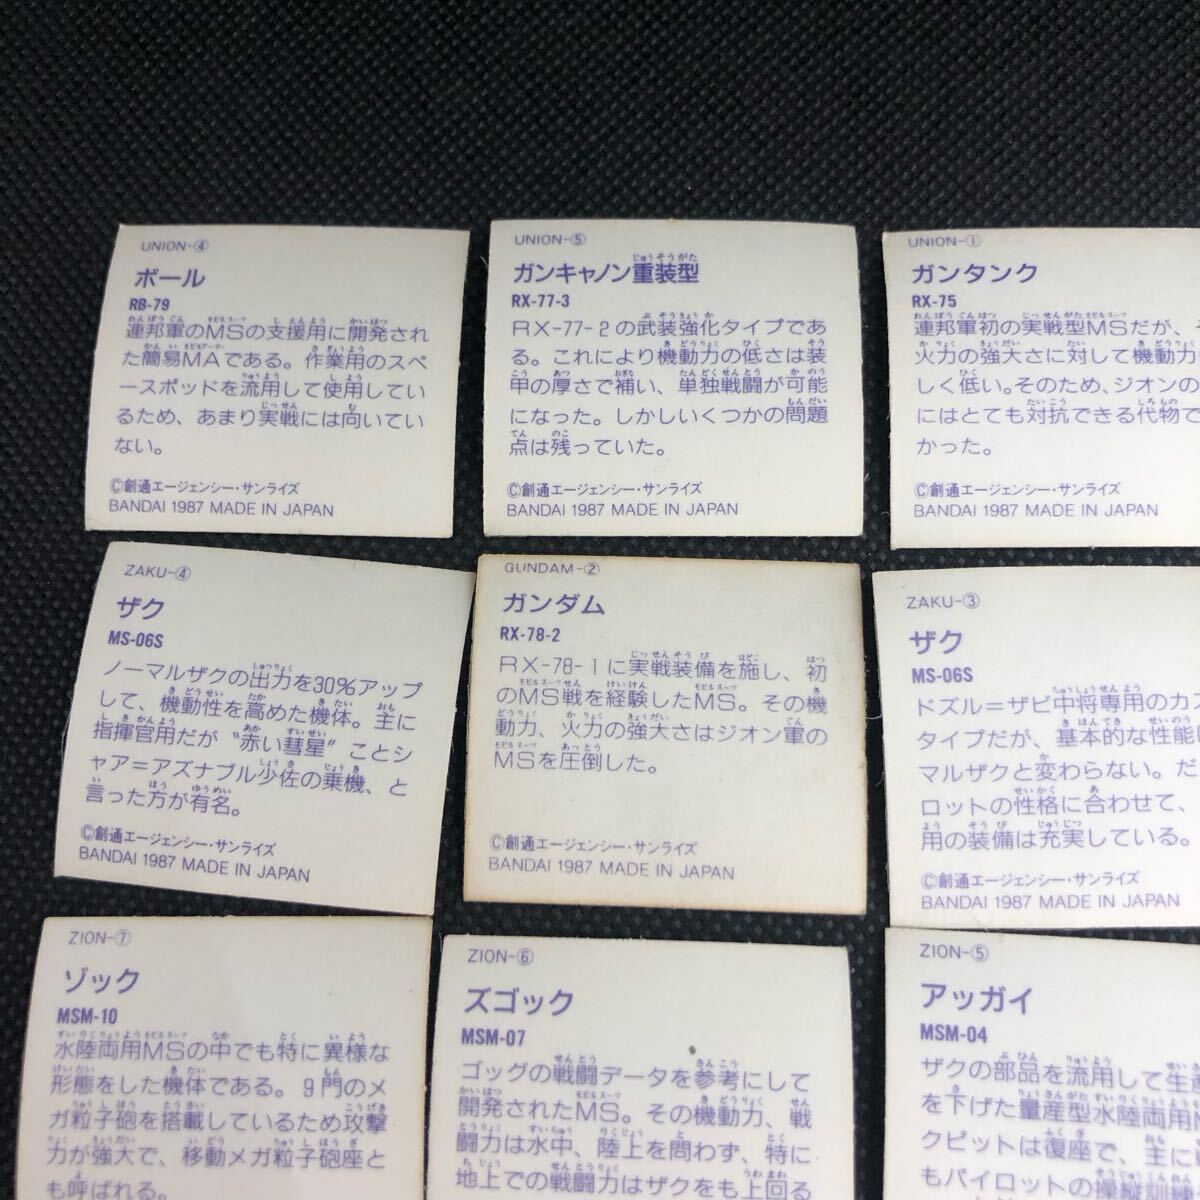 UNION-④
ボール
RB-79
連邦軍のMSの支援用に開発され
た簡易MAである。作業用のスペ
ースポッドを流用して使用してい
るため、あまり実戦には向いてい
ない。
©創通エージェンシー・サンライズ
BANDAI 1987 MADE IN JAPAN
UNION-⑤
ガンキャノン重装型
RX-77-3
RX-77-2の武装強化タイプであ
る。これにより機動力の低さは装
甲の厚さで補い、単独戦闘が可能
になった。しかしいくつかの問題
点は残っていた。
©創通エージェンシー・サンライズ
BANDAI 1987 MADE IN JAPAN
UNION-①
ガンタンク
RX-75
連邦軍初の実戦型MSだが、
火力の強大さに対して機動力
しく低い。そのため、ジオンの
にはとても対抗できる代物で
かった。
©創通エージェンシー・サンライズ
BANDAI 1987 MADE IN JAPAN
ZAKU-④
ザク
MS-06S
ノーマルザクの出力を30%アップ
して、機動性を高めた機体。主に
指揮官用だが〝赤い彗星〟ことシ
ャア=アズナブル少佐の乗機、と
言った方が有名。
©創通エージェンシー・サンライズ
BANDAI 1987 MADE IN JAPAN
GUNDAM-②
ガンダム
RX-78-2
RX-78-1に実戦装備を施し、初
のMS戦を経験したMS。その機
動力、火力の強大さはジオン軍の
MSを圧倒した。
©創通エージェンシー・サンライズ
BANDAI 1987 MADE IN JAPAN
ZAKU-③
ザク
MS-06S
ドズル=ザビ中将専用のカス
タイプだが、基本的な性能は
マルザクと変わらない。だ
ロットの性格に合わせて、
用の装備は充実している。
©創通エージェンシー・サンライズ
BANDAI 1987 MADE IN JAPAN
ZION-⑦
ゾック
MSM-10
水陸両用MSの中でも特に異様な
形態をした機体である。9門のメ
ガ粒子砲を搭載しているため攻撃
力が強大で、移動メガ粒子砲座と
も呼ばれる。
ZION-⑥
ズゴック
MSM-07
ゴッグの戦闘データを参考にして
開発されたMS。その機動力、戦
闘力は水中、陸上を問わず、特に
地上での戦闘力はザクをも上回る
ZION-⑤
アッガイ
MSM-04
ザクの部品を流用して生産
を下げた量産型水陸両用
クピットは復座で、主に
もパイロットの操縦訓練